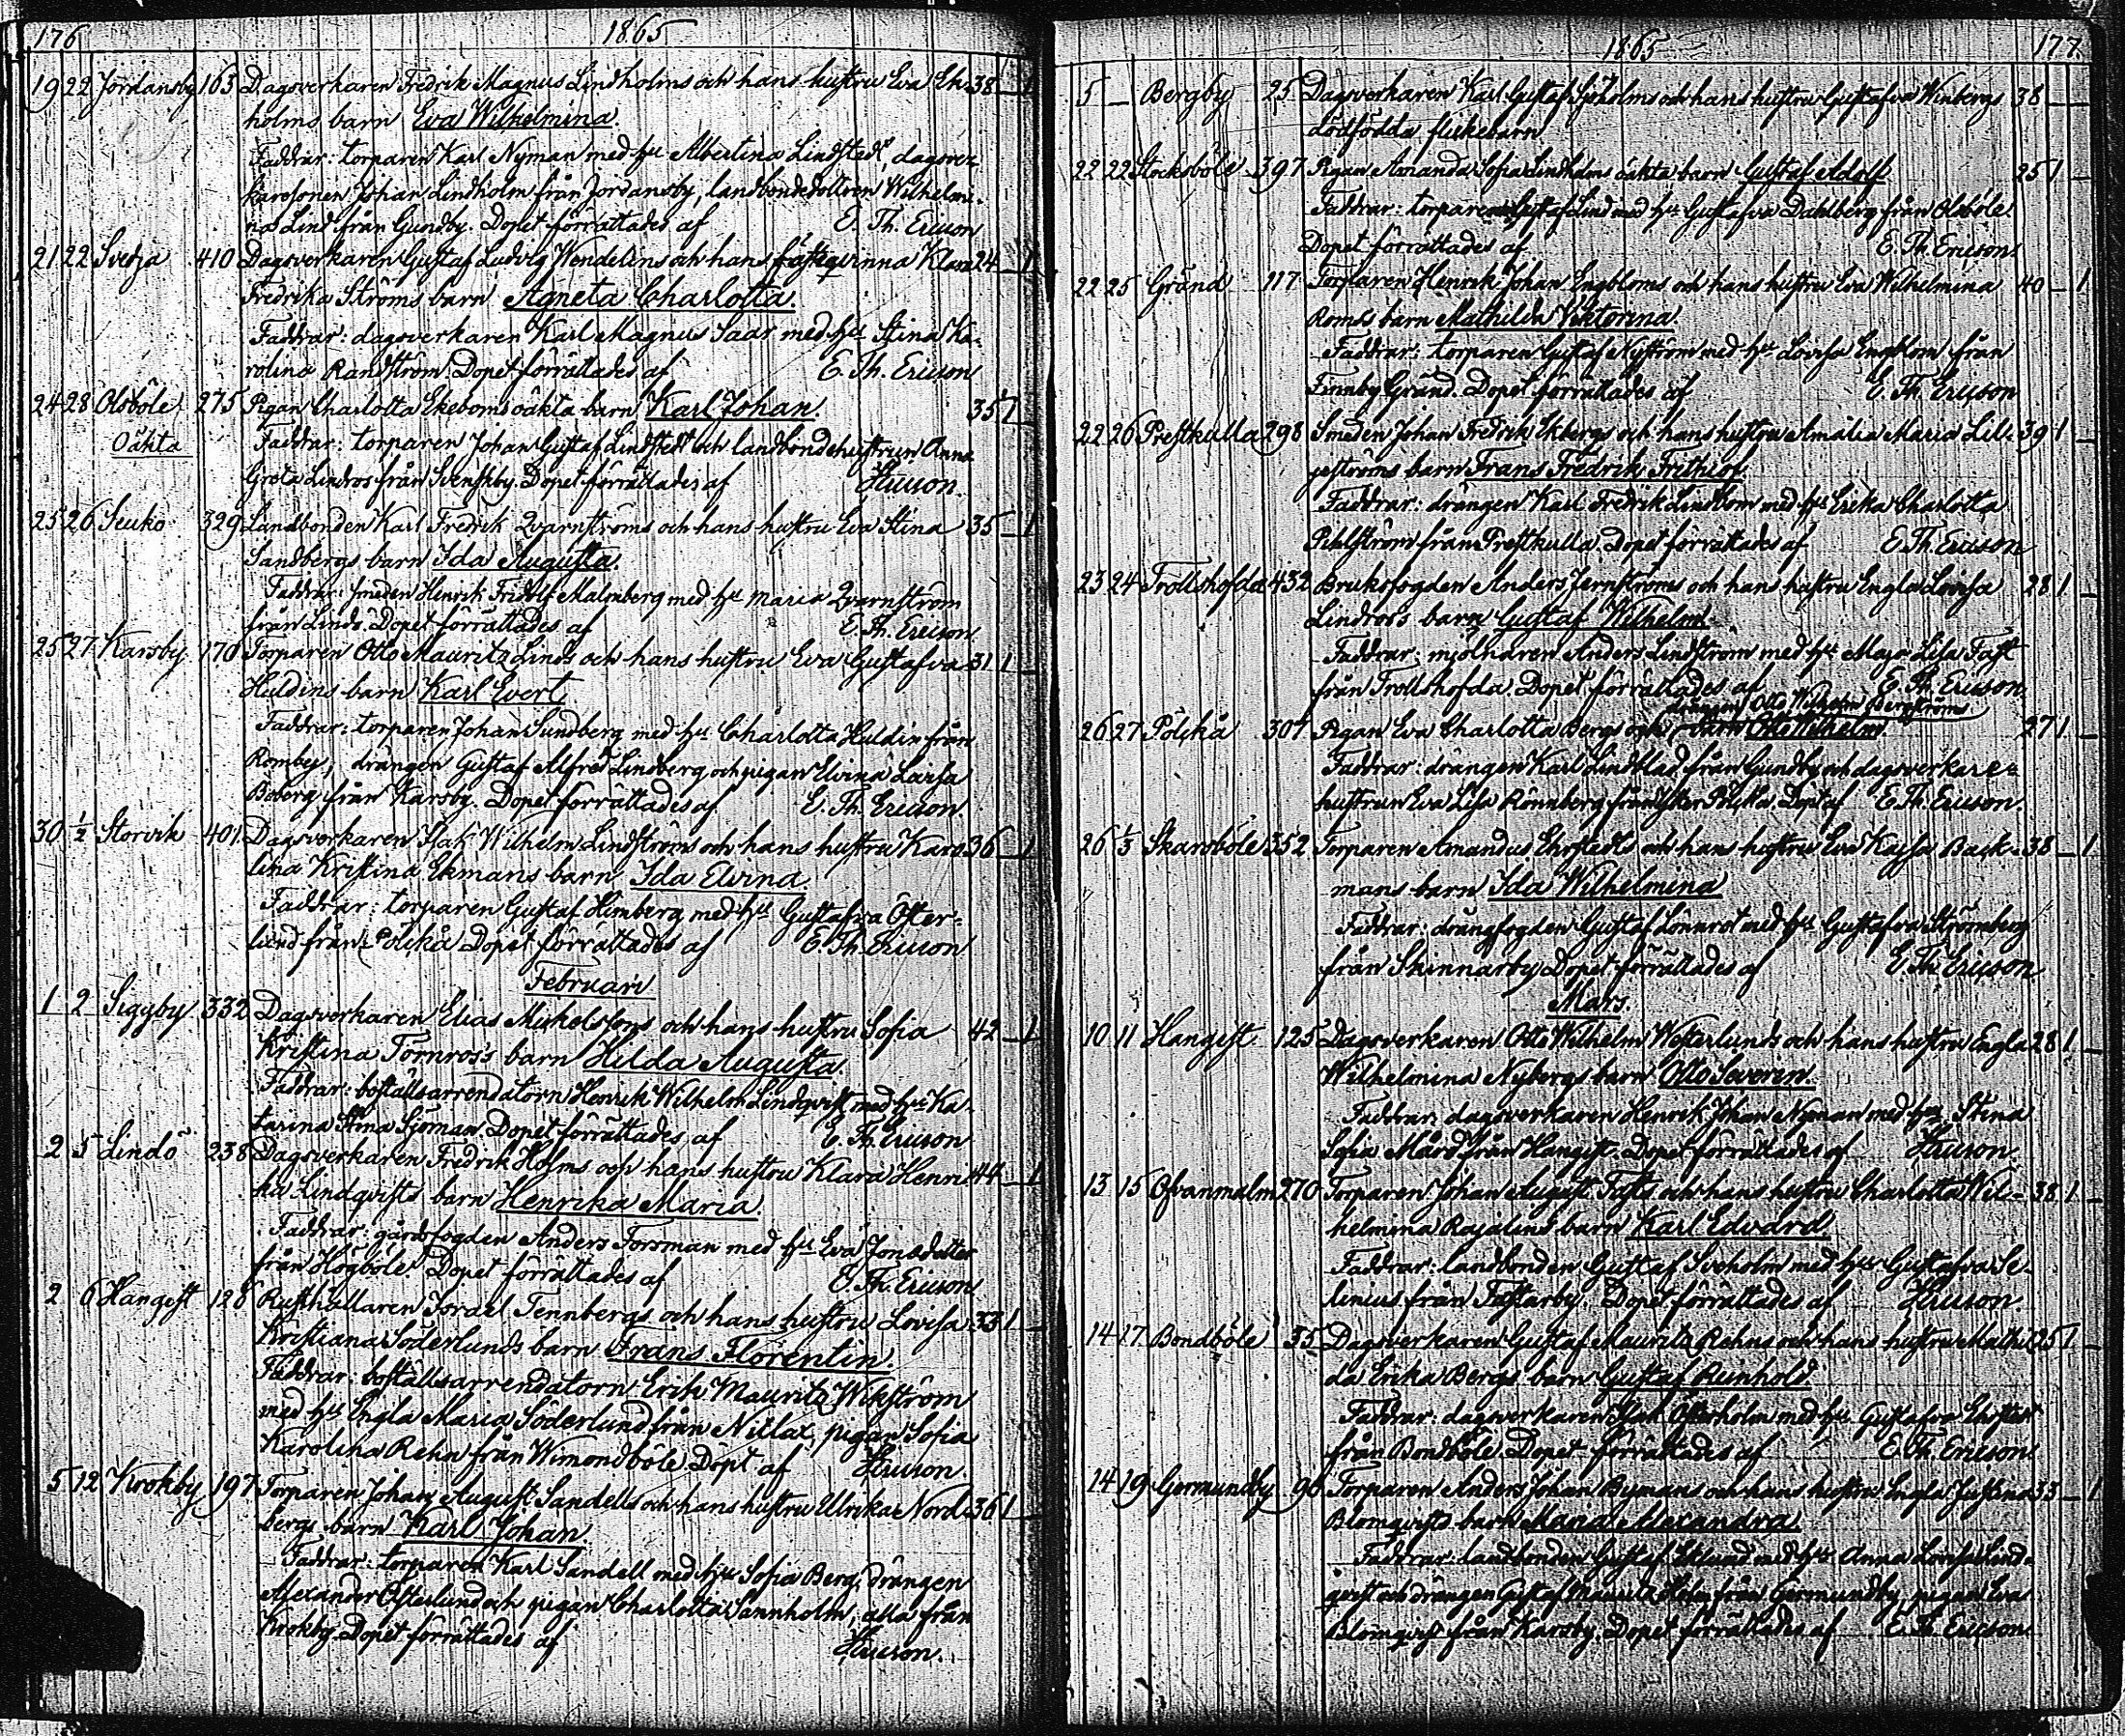 176 1865
19 22 Jordansby 163 Dagsverkaren Fredrik Magnus Lindholms och hans hustru Eva Ek- 38 1
holms barn Eva Wilhelmina.
Faddrar: torparen Karl Nyman med hu Albertina Lindstedt, dagsver-
karesonen Johan Lindholm från Jordansby, landbondedottren Wilhelmi-
na Lind från Gundby. Dopet förrättades af E. Th. Ericson
21 22 Svedja 410 Dagsverkaren Gustaf Ludvig Wendelins och hans fästeqvinna Klara 24 1
Fredrika Ströms barn Agneta Charlotta.
Faddrar: dagsverkaren Karl Magnus Saar med hu Stina Ka-
rolina Randström. Dopet förrättades af E. Th. Ericson
24 28 Olsböle 275 Pigan Charlotta Ekeboms oäkta barn Karl Johan. 35 1
Oäkta Faddrar: torparen Johan Gustaf Lindstedt och landbondehustrun Anna
Greta Lindros från Svenskby. Dopet förrättades af
25 26 Seuko 329 Landbonden Karl Fredrik Qvarnströms och hans hustru Eva Stina 35 1
Sandbergs barn Ida Augusta.
Faddrar: smeden Henrik Fridolf Malmberg med hu Maria Qvarnström
från Lindö. Dopet förrättades af E. Th. Ericson
25 27 Karsby 170 Torparen Otto Mauritz Linds och hans hustru Eva Gustafva 31 1
Huldins barn Karl Evert
Faddrar: torparen Johan Sundberg med hu Charlotta Huldin från
Romby, drängen Gustaf Alfred Lindberg och pigan Elvina Lovisa
Boberg från Karsby. Dopet förrättades af E. Th. Ericson.
30 1/2 Storvik 401 Dagsverkaren Isak Wilhelm Lindströms och hans hustru Karo- 36 1
lina Kristina Ekmans barn Ida Elvina.
Faddrar: torparen Gustaf Himberg med hu Gustafva Öster-
lund från Pölckå Dopet förrättades af E. Th. Ericson
Februari
1 2 Siggby 332 Dagsverkaren Elias Mickelssons och hans hustru Sofia 42 1
Kristina Törnros's barn Hilda Augusta.
Faddrar: boställsarrendatorn Henrik Wilhelm Lindqvist med hu Ka-
tarina Stina Sjöman. Dopet förrättades af E. Th. Ericson
2 5 Lindö 238 Dagsverkaren Fredrik Holms och hans hustru Klara Henri- 44 1
ka Lindqvists barn Henrika Maria.
Faddrar: gårdsfogden Anders Forsman med hu Eva Jonsdotter
från Högböle. Dopet förrättades af E. Th. Ericson
2 6 Hangist 126 Rusthållaren Israel Tennbergs och hans hustru Lovisa 33 1
Kristiana Söderlunds barn Frans Florentin.
Faddrar: boställsarrendatorn Erik Mauritz Wikström
med hu Engla Maria Söderlund från Nitlax, pigan Sofia
Karolina Rehn från Wimondböle Döpt af
5 12 Krokby 197 Torparen Johan August Sandells och hans hustru Ulrika Nord- 36 1
bergs barn Karl Johan.
Faddrar: torparen Karl Sandell med hu Sofia Berg, drängen
Alexander Österlund och pigan Charlotta Sannholm, alla från
Krokby. Dopet förrättades af
1865 177.
5 – Bergby 25 Dagsverkaren Karl Gustaf Sjöholms och hans hustru Gustafva Winbergs 38
dödfödda flickebarn
22 22 Stocksböle 397 Pigan Amanda Sofia Lindholms oäkta barn Gustaf Adolf 25 1
Faddrar: torparen Gustaf Lind med hu Gustafva Dahlberg från Olsböle.
Dopet förrättades af E. Th. Ericson.
22 25 Gränd 117 Torparen Henrik Johan Engbloms och hans hustru Eva Wilhelmina 40 1
Roms's barn Mathilda Viktorina.
Faddrar: torparen Gustaf Nyström med hu Lovisa Engblom från
Finnby Gränd. Dopet förrättades af E. Th. Ericson
22 26 Prestkulla 298 Smeden Johan Fredrik Ekbergs och hans hustru Amalia Maria Lil- 39 1
jeströms barn Frans Fredrik Frithiof
Faddrar: drängen Karl Fredrik Lindbom med hu Erika Charlotta
Pihlström från Prestkulla. Dopet förrättades af E. Th. Ericson
23 24 Trollshofda 432 Bruksfogden Anders Jernströms och hans hustru Engla Lovisa 28 1
Lindros's barn Gustaf Wilhelm.
Faddrar: mjölnaren Anders Lindström med hu Maja Lisa Fast
från Trollshofda. Dopet förrättades af E. Th. Ericson.
drängen Otto Wilhelm Bergströms
26 27 Pölckå 307 Pigan Eva Charlotta Bergs och barn Otto Wilhelm 27 1
Faddrar: drängen Karl Lindblad från Gundby och dagsverkare-
hustrun Eva Lisa Rönnberg från Pölckå Döpt af E. Th. Ericson.
26 1/3 Skarsböle 352 Torparen Amandus Ehrstedts och hans hustru Eva Kajsa Back- 38 1
mans barn Ida Wilhelmina
Faddrar: drängfogden Gustaf Lönnrot med hu Gustafva Strömberg
från Skinnarby Dopet förrättades af E. Th. Ericson
Mars.
10 11 Hangist 125 Dagsverkaren Otto Wilhelm Westerlunds och hans hustru Engla 28 1
Wilhelmina Nybergs barn Otto Severin.
Faddrar: dagsverkaren Henrik Johan Nyman med hu Stina
Sofia Mård från Hangist. Dopet förrättades af
13 15 Ofvanmalm 270 Torparen Johan August Fasts och hans hustru Charlotta Wil- 38 1
helmina Rajalins barn Karl Edvard.
Faddrar: landbonden Gustaf Sveholm med hu Gustafva Se-
linius från Fastarby. Dopet förrättades af
14 17 Bondböle 35 Dagsverkaren Gustaf Mauritz Rehns och hans hustru Mathil- 25 1
da Erika Bergs barn Gustaf Reinhold
Faddrar: dagsverkaren Isak Österholm med hu Gustafva
från Bondböle. Dopet förrättades af E. Th. Ericson.
14 19 Germundby 90 Torparen Anders Johan Bymans och hans hustru Engla Justina 33 1
Blomqvists barn Maria Alexandra.
Faddrar: landbonden Gustaf Eklund med hu Anna Lovisa Lind-
qvist och drängen Gustaf Mauritz Holm från Germundby, pigan Eva
Blomqvist från Karsby. Dopet förrättades af E. Th. Ericson